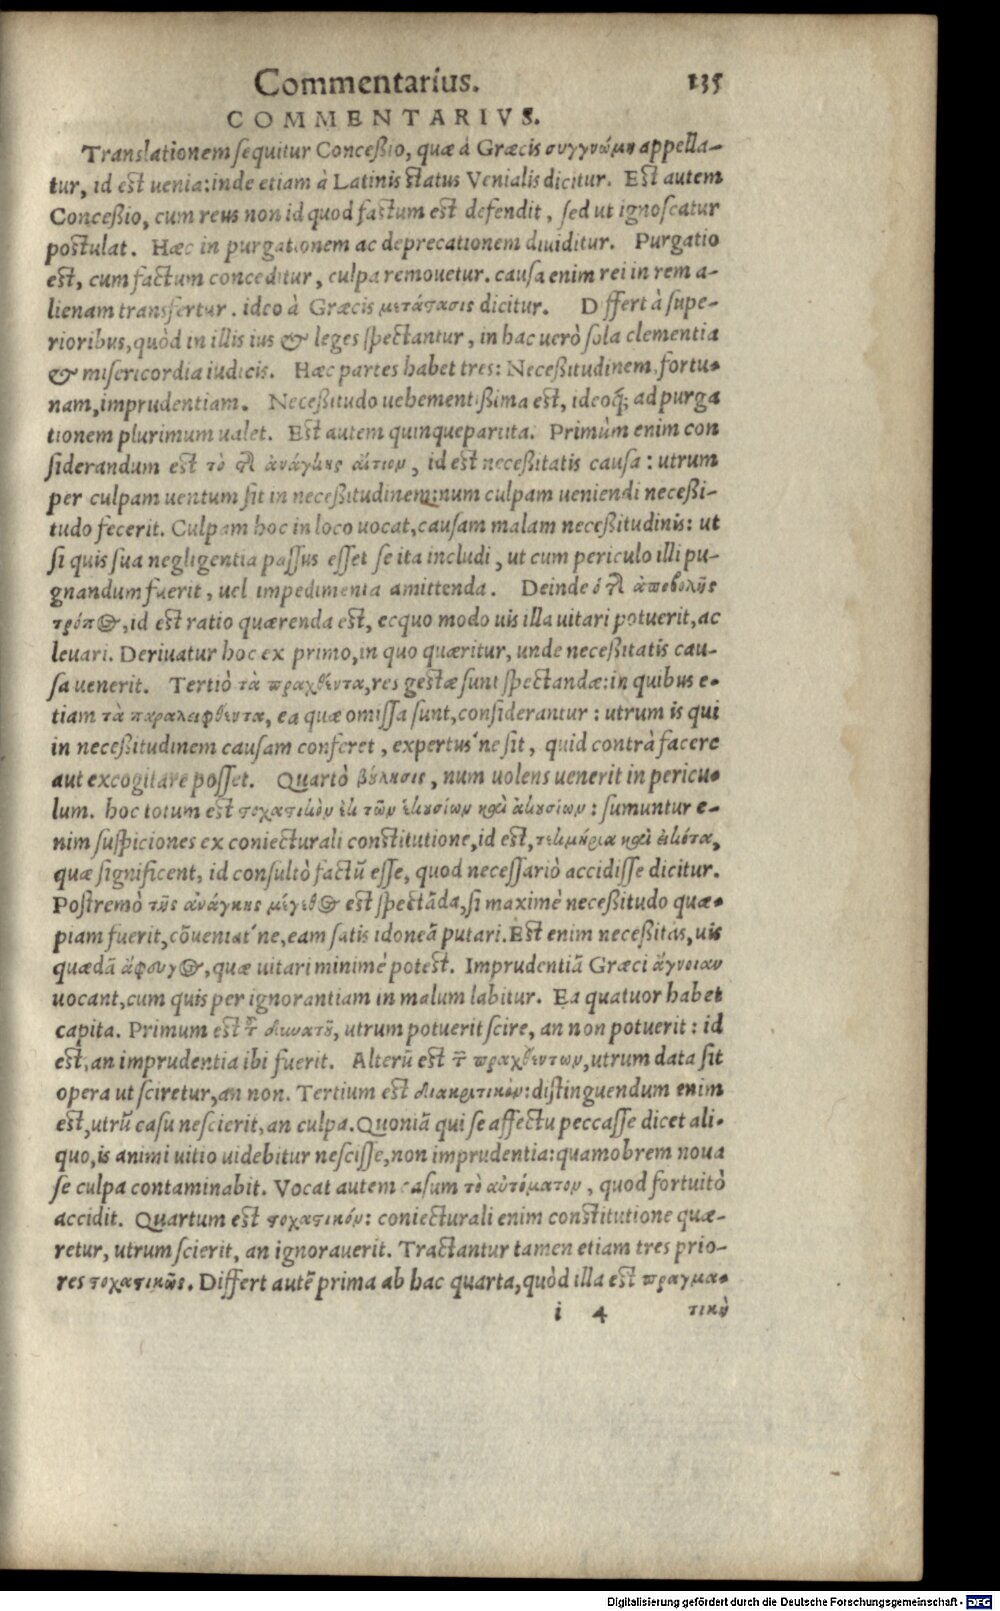 Commentarius. 135
COMMENTARIVS.
Translationem sequitur Conceßio, quæ à Græcis συγγνώμη appella-
tur, id est uenia: inde etiam à Latinis status Venialis dicitur. Est autem
Conceßio, cum reus non id quod factum est defendit, sed ut ignoscatur
postulat. Hæc in purgationem ac deprecationem diuiditur. Purgatio
est, cum factum conceditur, culpa remouetur. causa enim rei in rem a-
lienam transfertur. ideo à Græcis μετάστασις dicitur. Differt à supe-
rioribus, quòd in illis ius & leges spectantur, in hac uerò sola clementia
& misericordia iudicis. Hæc partes habet tres: Neceßitudinem, fortu-
nam, imprudentiam. Neceßitudo uehementißima est, ideoq́; ad purga
tionem plurimum ualet. Est autem quinquepartita. Primùm enim con
siderandum est τὸ τῆς ἀνάγκης αἴτιον, id est neceßitatis causa: utrum
per culpam uentum sit in neceßitudinem: num culpam ueniendi neceßi-
tudo fecerit. Culpam hoc in loco uocat, causam malam neceßitudinis: ut
si quis sua negligentia passus esset se ita includi, ut cum periculo illi pu-
gnandum fuerit, uel impedimenta amittenda. Deinde ὁ τῆς ἀποβολῆς
τρόπος, id est ratio quærenda est, ecquo modo uis illa uitari potuerit, ac
leuari. Deriuatur hoc ex primo, in quo quæritur, unde neceßitatis cau-
sa uenerit. Tertiò τὰ πραχθέντα, res gestæ sunt spectandæ: in quibus e-
tiam τὰ παραλειφθέντα, ea quæ omissa sunt, considerantur: utrum is qui
in neceßitudinem causam conferet, expertus'ne sit, quid contrà facere
aut excogitare posset. Quartò βούλησις, num uolens uenerit in pericu-
lum. hoc totum est στοχαστικὸν ἐκ τῶν ἑκουσίων καὶ ἀκουσίων: sumuntur e-
nim suspiciones ex coniecturali constitutione, id est, τεκμήρια καὶ εἰκότα,
quæ significent, id consultò factũ esse, quod necessariò accidisse dicitur.
Postremò τῆς ἀνάγκης μέγεθος est spectãda, si maximè neceßitudo quæ-
piam fuerit, cõueniat'ne, eam satis idoneã putari. Est enim necesitas, uis
quædã ἄφουγος, quæ uitari minimè potest. Imprudentiã Græci ἄγνοιαν
uocant, cum quis per ignorantiam in malum labitur. Ea quatuor habet
capita. Primum est τοῦ δυνατοῦ, utrum potuerit scire, an non potuerit: id
est, an imprudentia ibi fuerit. Alterũ est τῶν πραχθέντων, utrum data sit
opera ut sciretur, an non. Tertium est διακριτικόν: distinguendum enim
est, utrũ casu nescierit, an culpa. Quoniã qui se affectu peccasse dicet ali-
quo, is animi uitio uidebitur nescisse, non imprudentia: quamobrem noua
se culpa contaminabit. Vocat autem casum τὸ αὐτόματον, quod fortuitò
accidit. Quartum est στοχαστικόν: coniecturali enim constitutione quæ-
retur, utrum scierit, an ignorauerit. Tractantur tamen etiam tres prio-
res στοχαστικῶς. Differt autẽ prima ab hac quarta, quòd illa est πραγμα-
i 4 τικὴ
Digitalisierung gefördert durch die Deutsche Forschungsgemeinschaft - DFG